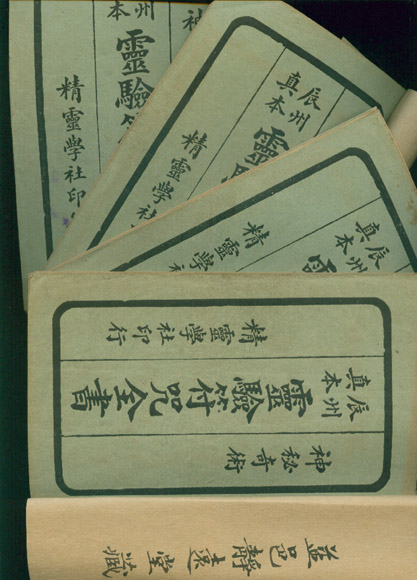 神
州
本
靈驗
精靈學社印
辰州
真本
靈
精靈學社
辰州
真本
靈
精靈學
神秘奇術
辰州
真本
靈驗符咒全書
精靈學社印行
益邑靜遠堂藏